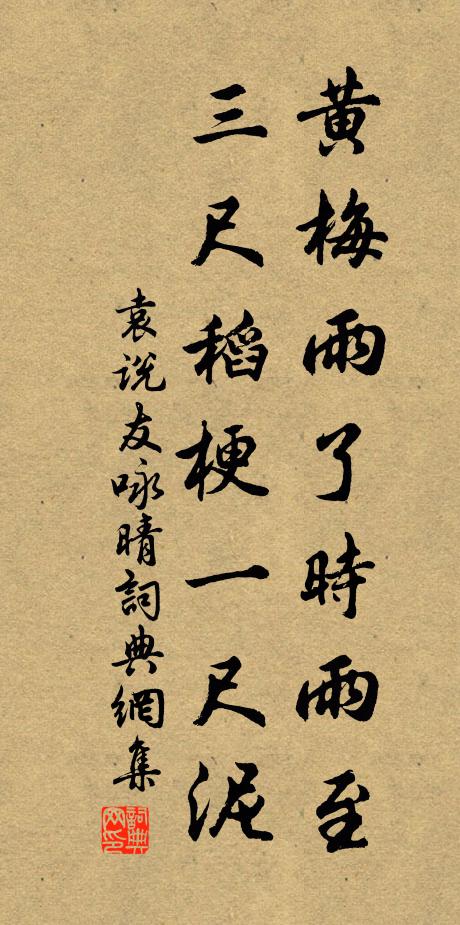 黄梅雨了時雨至
三尺稻梗一尺泥
袁说友咏晴詞典網集
詞典网印